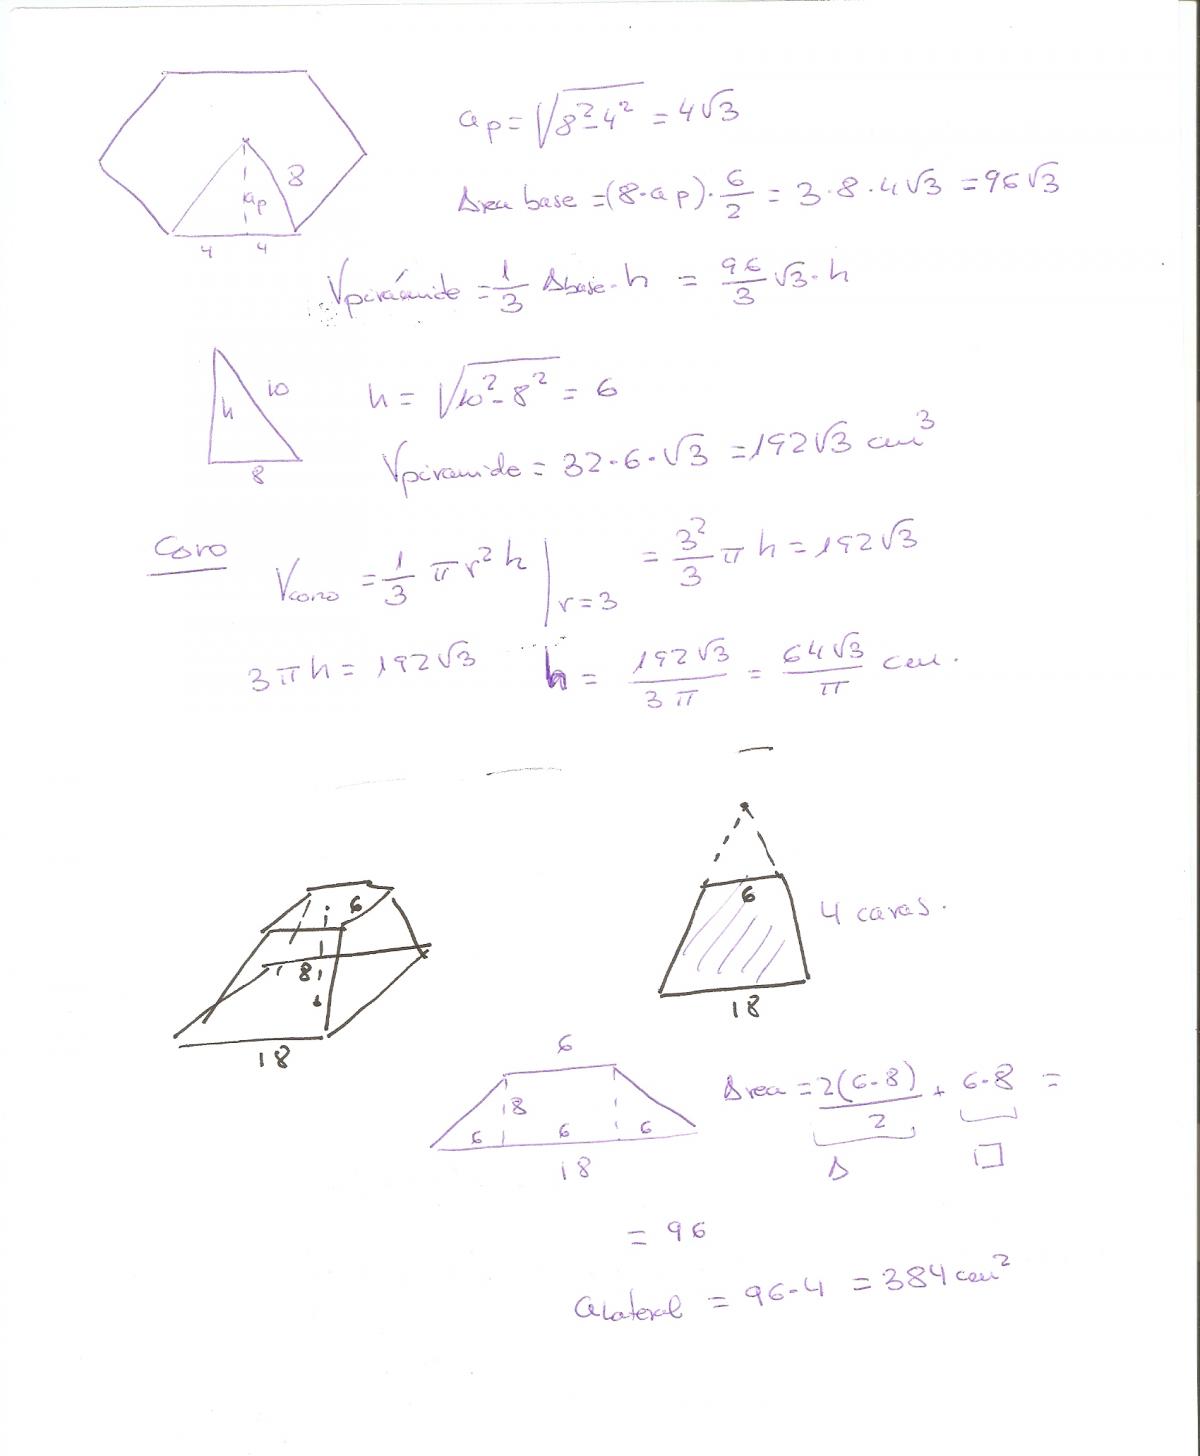 ap = √(8² - 4²) = 4√3
8
ap
4 4
Area base = (8·ap)·6/2 = 3·8·4√3 = 96√3
Vpirámide = 1/3 Abase·h = 96/3 √3·h
10
h
8
h = √(10² - 8²) = 6
Vpiramide = 32·6·√3 = 192√3 cm³
Cono
Vcono = 1/3 π r² h | r=3 = 3²/3 π h = 192√3
3πh = 192√3 h = 192√3/3π = 64√3/π cm.
6
8
18
6
18
4 caras.
6
8
6 6 6
18
Area = 2(6·8)/2 + 6·8 =
Δ □
= 96
alateral = 96·4 = 384 cm²